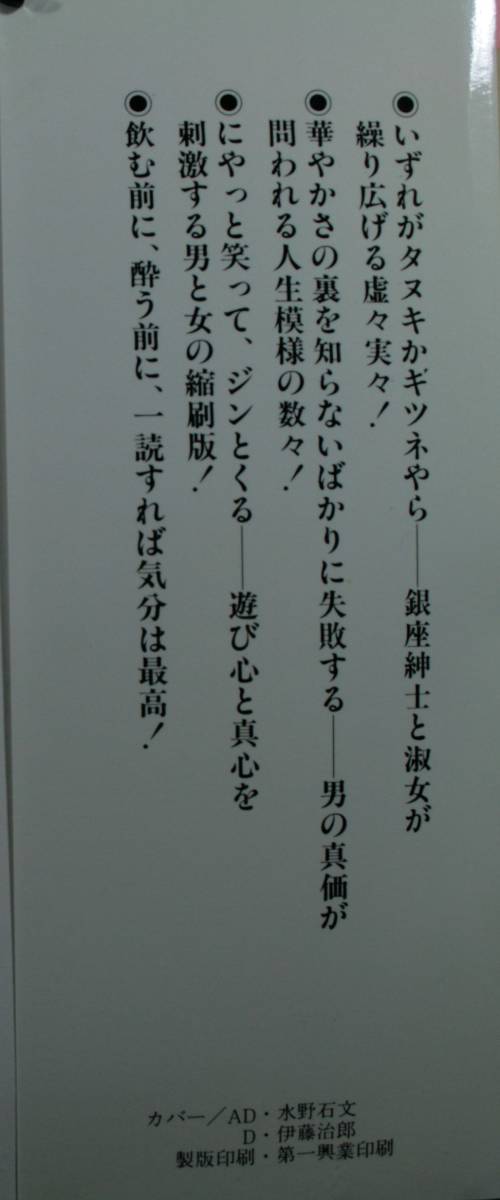 ◉いずれがタヌキかギツネやら――銀座紳士と淑女が
繰り広げる虚々実々！
◉華やかさの裏を知らないばかりに失敗する――男の真価が
問われる人生模様の数々！
◉にやっと笑って、ジンとくる――遊び心と真心を
刺激する男と女の縮刷版！
◉飲む前に、酔う前に、一読すれば気分は最高！
カバー／AD・水野石文
D・伊藤治郎
製版印刷・第一興業印刷